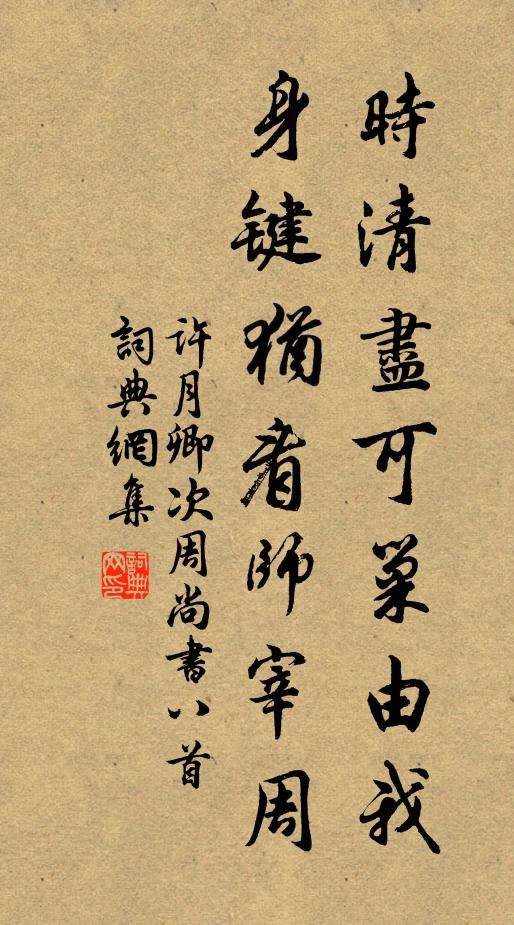 時清盡可巢由我
身鍵猶看師宰周
許月卿次周尚書八首
詞典網集
詞典網印